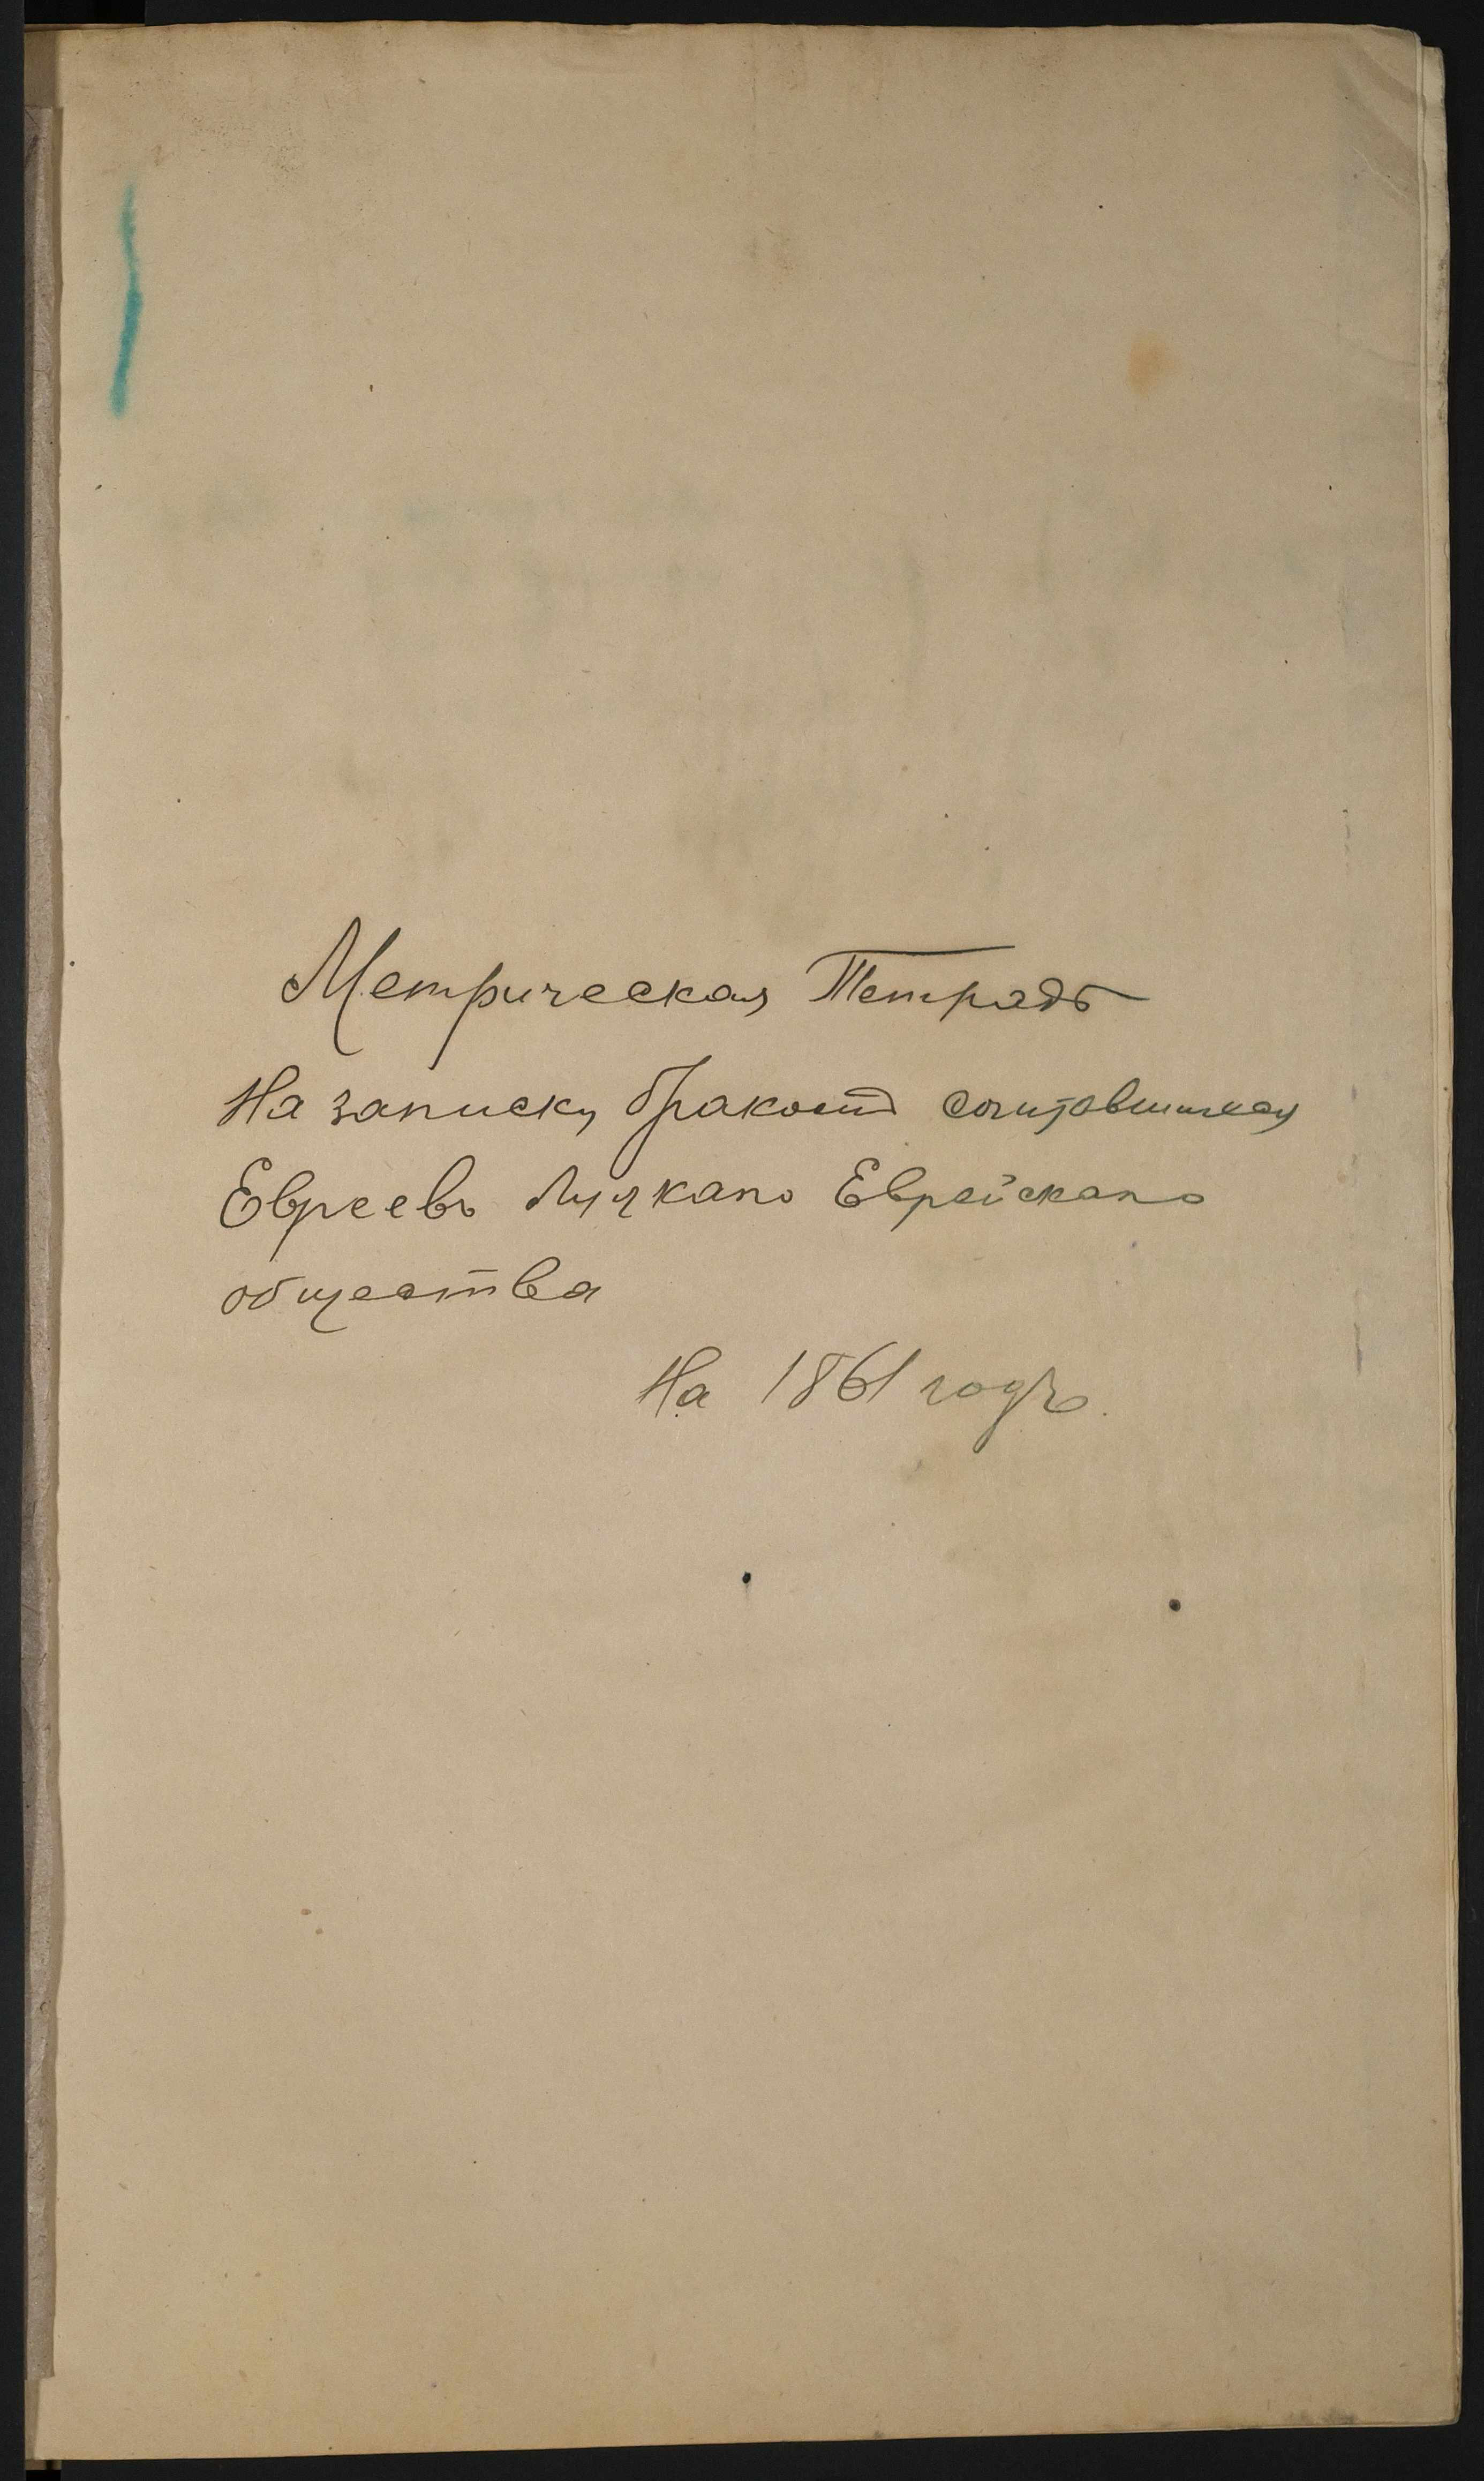 Метрическая Тетрадь
На записку бракомъ сочитавшихся
Евреевъ Луцкаго Еврейскаго
общества
На 1861 годъ.